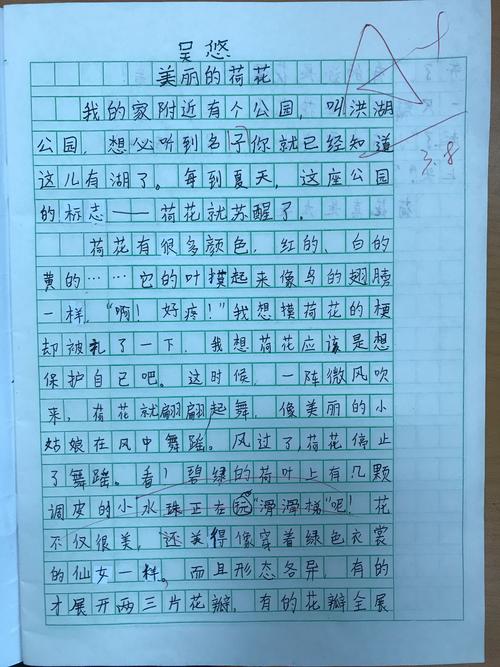 吴悠
美丽的荷花
我的家附近有个公园，叫洪湖
公园，想必听到名子你就已经知道
这儿有湖了。每到夏天，这座公园
的标志——荷花就苏醒了。
荷花有很多颜色，红的、白的
黄的……它的叶摸起来像鸟的翅膀
一样，“啊！好疼！”我想摸荷花的梗
却被扎了一下，我想荷花应该是想
保护自己吧。这时候，一阵微风吹
来，荷花就翩翩起舞，像美丽的小
姑娘在风中舞蹈。风过了，荷花停止
了舞蹈。看！碧绿的荷叶上有几颗
调皮的小水珠正在玩“滑滑梯”吧！花
不仅很美，还美得像穿着绿色衣裳
的仙女一样。而且形态各异，有的
才展开两三片花瓣，有的花瓣全展
A+
3.8